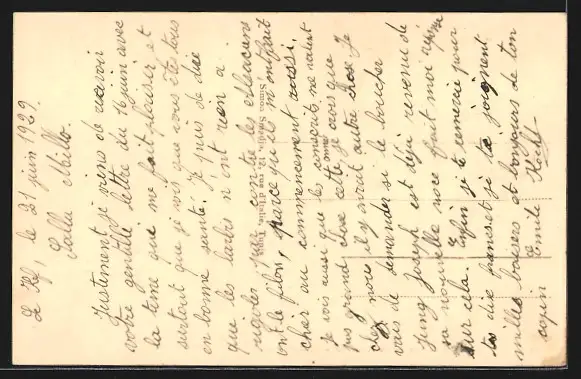 Le Kef, le 21 juin 1929.
Salle Abillo.
Justement je viens de recevoir
votre gentille lettre du 16 juin avec
la tene que me fait plaisir et
surtout que je vois que vous êtes tous
en bonne santé. Je puis de dire
que les larbis n'ont rien a
rigoler contre les chacun
ont le filon, parce qu'ils m'ont fait
chier au commencement aussi.
je vois aussi que les conscrits ne valent
pas grand chose cette je crois que
chez nous il y aurait autre chose. Je
vais de demander si le boucher
Jung Joseph est déjà revenu de
sa nouvelle noce fait moi
sur cela. Enfin je te remercie pour
tes dix francs et je te joignent
milles baisers et bonjours de ton
copin Emile Kochl
Simon Smadja, 12, rue d'Italie, Tunis